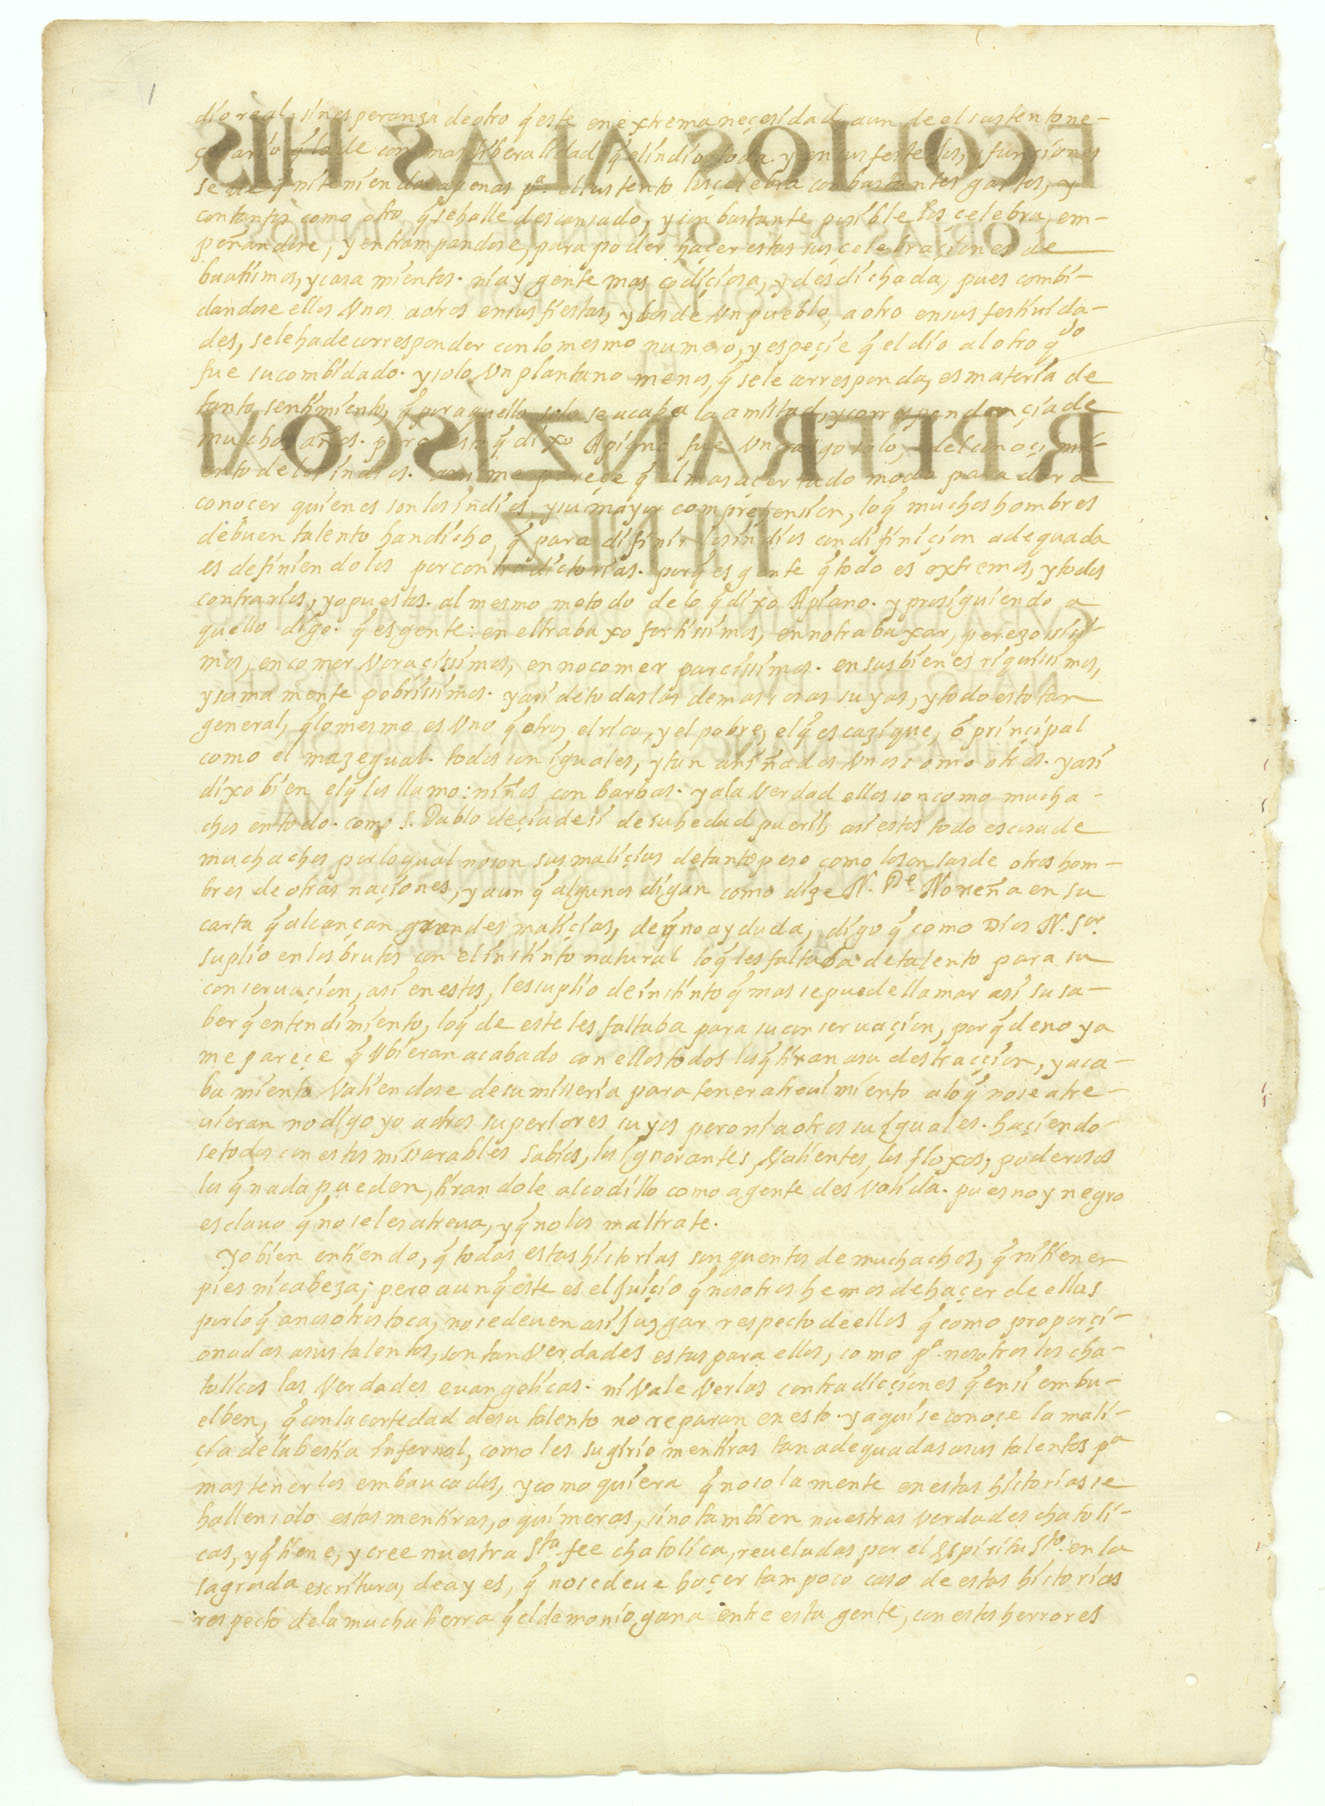 dio real, sin esperanza de otro q̃ este en extrema neçesidad aun de el sustento ne-
çesario q̃ lo de con mas liberalidad q̃ el indio toda. y en sus festejos, y funçiones
se ve q̃ ni teniendo apenas pª. el sustento los çelebra con bastantes gastos, y
con tantos como otro q̃ se halle descansado, y con bastante posible los celebra, em-
peñandose, y entrampandose, para poder haçer estas sus celebraçiones de
bautismos, y casamientos. ni ay gente mas codiçiosa, y desdichada, pues combi-
dandose ellos Unos a otros en sus fiestas, y los de Un pueblo, a otro en sus festiuida-
des, se le ha de corresponder con lo mesmo numero, y espeçie q̃ el dio al otro q̃do
fue su combidado. y solo Un plantano menos, q̃ se le corresponda, es materia de
tanto sentimiento, q̃ por aquello solo se acaba la amistad, y correspondençia de
muchos años. pero esto q̃ dixo Apiano fue Un rasgo solo, del conoçimi-
ento de los indios. assi me pareçe q̃ el mas açertado modo para dar a
conocer quienes son los indios, y su mayor comprehension, lo q̃ muchos hombres
de buen talento han dicho, q̃ para difinir los indios con difiniçion adequada
es definiendolos por contradictorias. porq̃ es gente q̃ todo es extremos, y todos
contrarios, y opuestos. al mesmo metodo de lo q̃ dixo Apiano. y prosiguiendo a
quello digo. q̃ es gente: en el trabaxo fortissimos, en no trabaxar, perezosissi-
mos, en comer Voraçissimos, en no comer parcissimos. en sus bienes riquissimos,
y sumamente pobrissimos. y asi de todas las demas cosas suyas, y todo esto tan
general, q̃ lo mesmo es Uno q̃ otro, el rico, y el pobre, el q̃ es cazique, ó prinçipal
como el mazegual. todos son iguales, y tan aniñados Unos como otros. y asi
dixo bien el q̃ los llamo: niños con barbas. y a la Verdad ellos son como mucha-
chos en todo. como S. Pablo deçia de si de su hedad pueril, asi estos todo es cosa de
muchachos por lo qual no son sus maliçias de tanto peso como lo son las de otros hom-
bres de otras naçiones, y aun q̃ algunos digan como dize N. Pe Noreña en su
carta q̃ alcançan grandes maliçias, de q̃ no ay duda, digo q̃ como Dios N. Sor.
suplio en los brutos con el instinto natural lo q̃ les faltaba de talento para su
conseruaçion, asi en estos, les suplio de instinto q̃ mas se puede llamar asi su sa-
ber q̃ entendimiento, lo q̃ de este les faltaba para su conseruaçion, porq̃ de no ya
me pareçe q̃ Ubieran acabado con ellos todos los q̃ tiran a su destrucçion, y aca-
bamiento Valiendose de su misseria para tener atreuimiento a lo q̃ no se atre-
uieran no digo yo a otros superiores suyos pero ni a otros su iguales. haçiendo-
se todos con estos miserables sabios, los ignorantes, Valientes, los floxos, poderosos
los q̃ nada pueden, tirandole al codillo como a gente des Valida. pues no y negro
esclauo q̃ no se les atreua, y q̃ no los maltrate.
Yo bien entiendo, q̃ todas estas historias son quentos de muchachos, q̃ ni tienen
pies ni cabeza; pero aunq̃ este es el juiçio q̃ nosotros hemos de haçer de ellas
por lo q̃ a nosotros toca, no se deuen asi juzgar respecto de ellos q̃ como proporçi-
onadas a sus talentos, son tan Verdades estas para ellos, como pª. nosotros los cha-
tolicos las Verdades euangelicas. ni Vale Ver las contradicçiones q̃ en si embu-
elben, q̃ con la cortedad de su talento no reparan en esto. y aqui se conoçe la mali-
çia de la bestia infernal, como les sugirio mentiras tan adequadas a sus talentos pª
mas tenerlos embaucados, y como quiera q̃ no solamente en estas historias se
hallen solo estas mentiras, o quimeras, sino tambien nuestras Verdades chatoli-
cas, y q̃ tiene, y cree nuestra Sta. fee chatolica, reueladas por el Espiritu Sto. en la
sagrada escritura, de ay es, q̃ no se deue haçer tampoco caso de estas historias
respecto de la mucha tierra q̃ el demonio gana entre esta gente, con estos herrores